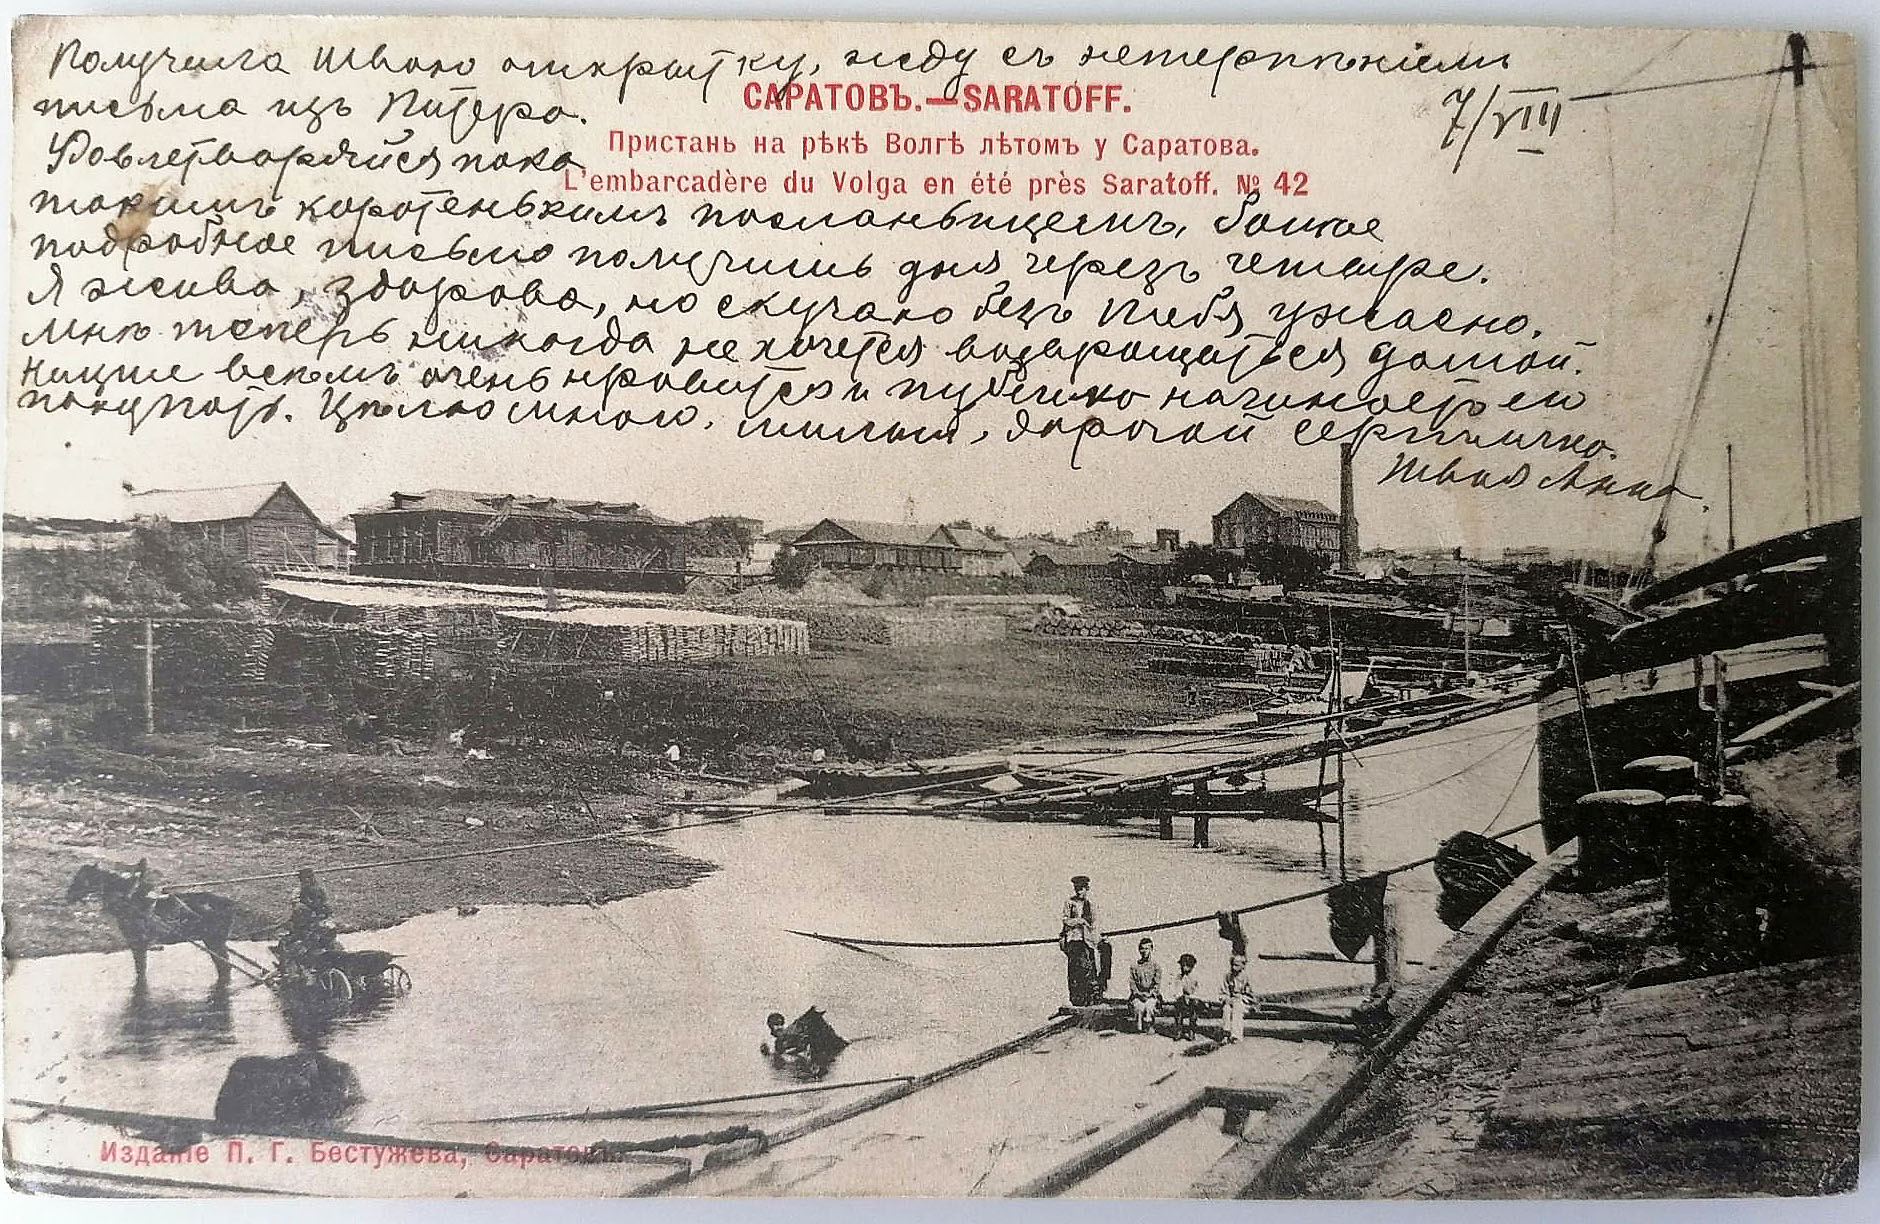 Получила твою открытку, жду съ нетерпѣніемъ
письма изъ Питера.
7/VIII
САРАТОВЪ.—SARATOFF.
Пристань на рѣкѣ Волгѣ лѣтомъ у Саратова.
L'embarcadère du Volga en été près Saratoff. № 42
Удовлетворяйся пока
такимъ коротенькимъ посланьицемъ, более
подробное письмо получишь дня черезъ четыре.
Я жива, здорова, но скучаю безъ тебя ужасно.
Мнѣ теперь никогда не хочется возвращаться домой.
всѣмъ очень нравится и публика начинаетъ ею
покупать. Цѣлую много, милый, дорогой Сергунчика.
Твоя Анна.
Изданіе П. Г. Бестужева, Саратовъ.